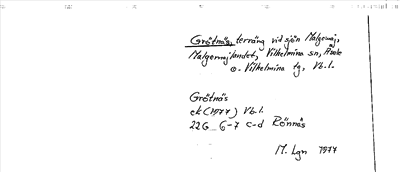 Grötnäs, terräng vid sjön Malgomaj,
Malgomajlandet, Vilhelmina sn, Åsele
o. Vilhelmina tg, Vb.l.
Grötnäs
ek (1977) Vb.l.
22G 6-7 c-d Rönnäs
M. Lgn 1977